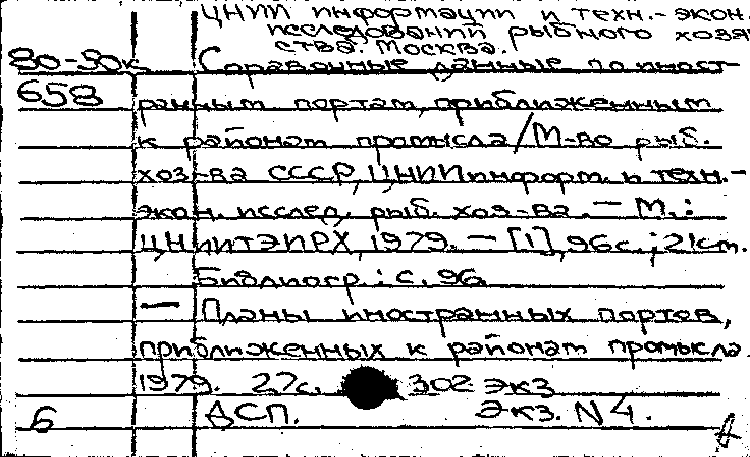 ЦНИИ информации и техн.-экон.
исследований рыбного хозяй
ства. Москва.
80-30к Справочные данные по иност-
658 ранным портам, приближенным
к районам промысла / М-во рыб.
хоз-ва СССР, ЦНИИ информ. и техн.-
экон. исслед. рыб. хоз-ва. — М.:
ЦНИИТЭИРХ, 1979. — [1], 96с.; 21см.
Библиогр.: с. 96
— Планы иностранных портов,
приближенных к районам промысла.
1979. 27с. 302 экз
6 ДСП. Экз. N 4.